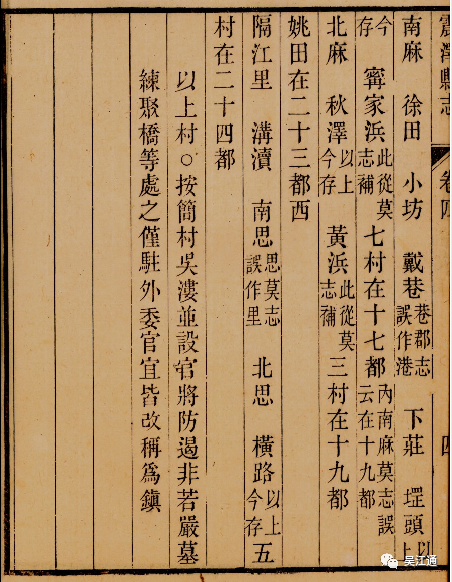 震澤縣志 卷四 四
南麻 徐田 小坊 戴巷 巷郡志誤作港 下莊 堽頭 以上
今存 寗家浜 此從莫志補 七村在十七都 內南麻莫志誤云在十九都
北麻 秋澤 以上今存 黃浜 此從莫志補 三村在十九都
姚田在二十三都西
隔江里 溝瀆 南思 思莫志誤作里 北思 橫路 以上今存 五
村在二十四都
以上村○按簡村吳漊並設官將防遏非若嚴墓
練聚橋等處之僅駐外委官宜皆改稱爲鎭
吴江通